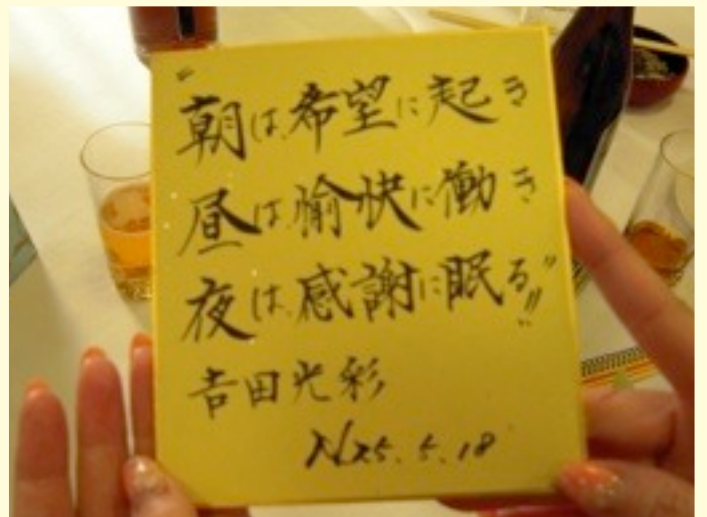 "朝は希望に起き
昼は愉快に働き
夜は感謝に眠る"!!
吉田光彩
H25.5.18